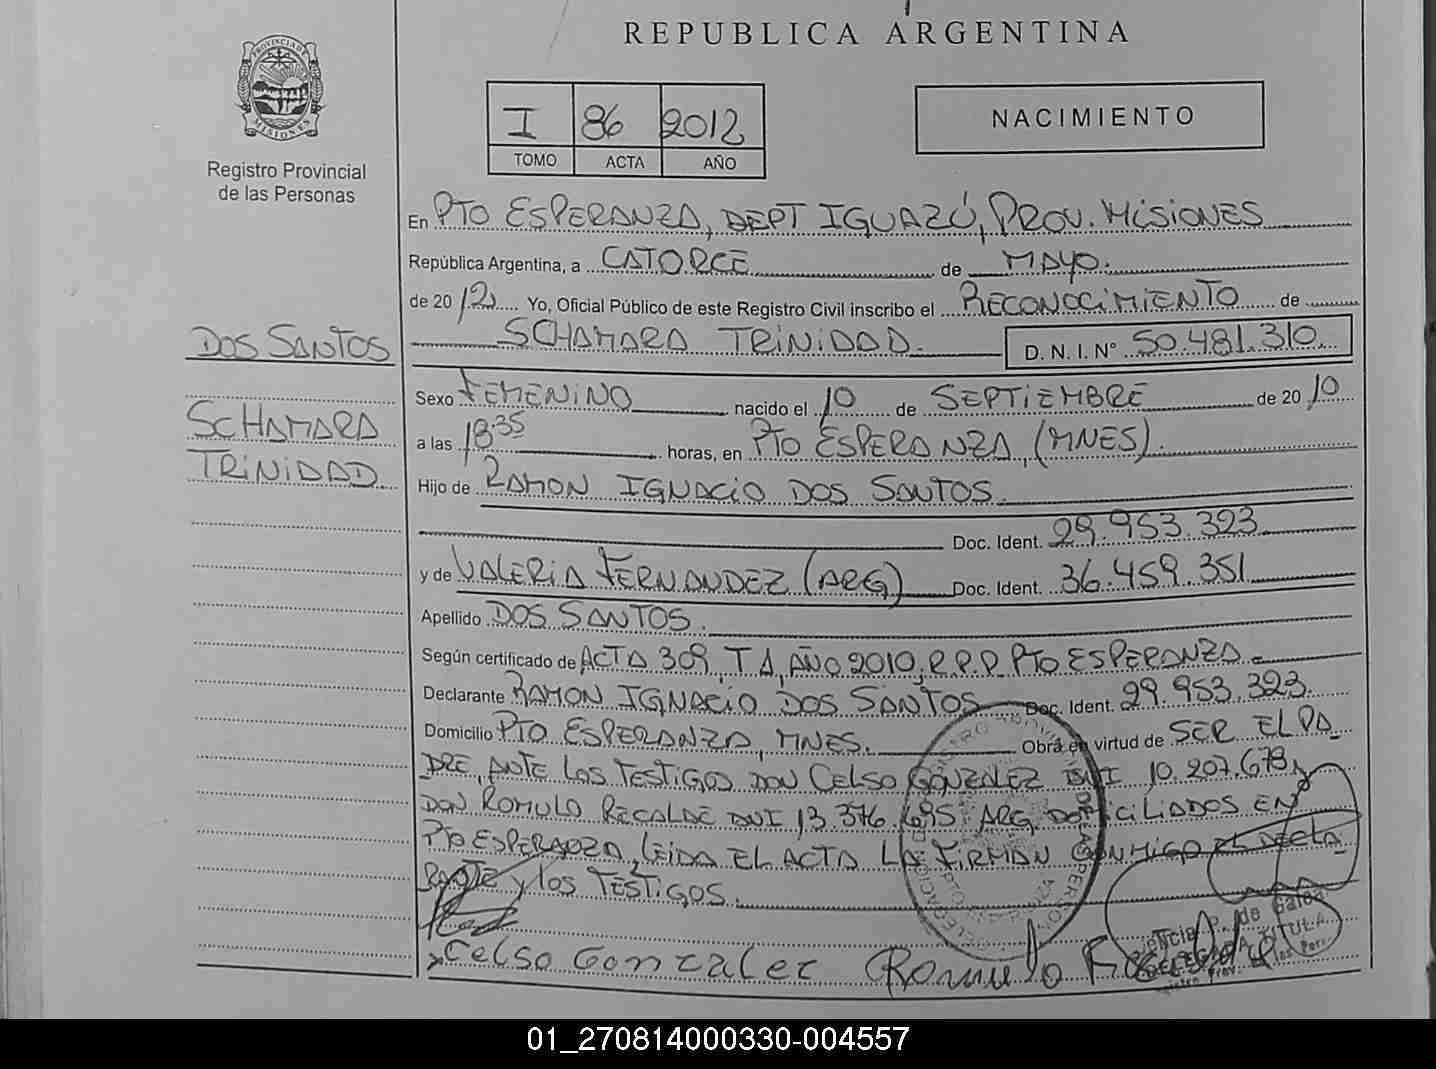 REPUBLICA ARGENTINA
PROVINCIA DE
MISIONES
Registro Provincial
de las Personas
I 86 2012
TOMO ACTA AÑO
NACIMIENTO
En PTO ESPERANZA, DEPT IGUAZÚ, PROV. MISIONES
República Argentina, a CATORCE de MAYO.
de 2012 Yo, Oficial Público de este Registro Civil inscribo el RECONOCIMIENTO de
SCHAMARA TRINIDAD. D. N. I. N° 50.481.310
DOS SANTOS
SCHAMARA
TRINIDAD
Sexo FEMENINO nacido el 10 de SEPTIEMBRE de 2010
a las 18:35 horas, en PTO ESPERANZA, (MNES).
Hijo de RAMON IGNACIO DOS SANTOS
Doc. Ident. 29.953.323
y de VALERIA FERNANDEZ (ARG) Doc. Ident. 36.459.351
Apellido DOS SANTOS.
Según certificado de ACTA 309, T A, AÑO 2010, R.P.P PTO ESPERANZA
Declarante RAMON IGNACIO DOS SANTOS Doc. Ident. 29.953.323
Domicilio PTO ESPERANZA, MNES. Obra en virtud de SER EL PA
DRE, ANTE LOS TESTIGOS DON CELSO GONZALEZ DNI 10.207.678 y
DON ROMULO RECALDE DNI 13.376.695 ARG DOMICILIADOS EN
PTO ESPERANZA, LEIDA EL ACTA LA FIRMAN CONMIGO EL DECLA
RANTE y LOS TESTIGOS.
Celso Gonzalez Romulo Recalde
01_270814000330-004557